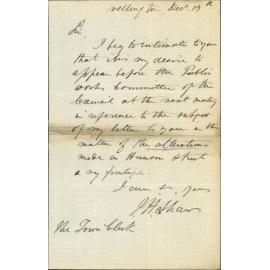 Wellington Dec. 13th
Sir,
I beg to intimate to you
that it is my desire to
appear before the Public
Works Committee of the
Council at the next meeting
in reference to the subject
of my letter to you in the
matter of the alterations
made in Street
a my frontage.
I am sir, yours
J H Shaw
The Town Clerk